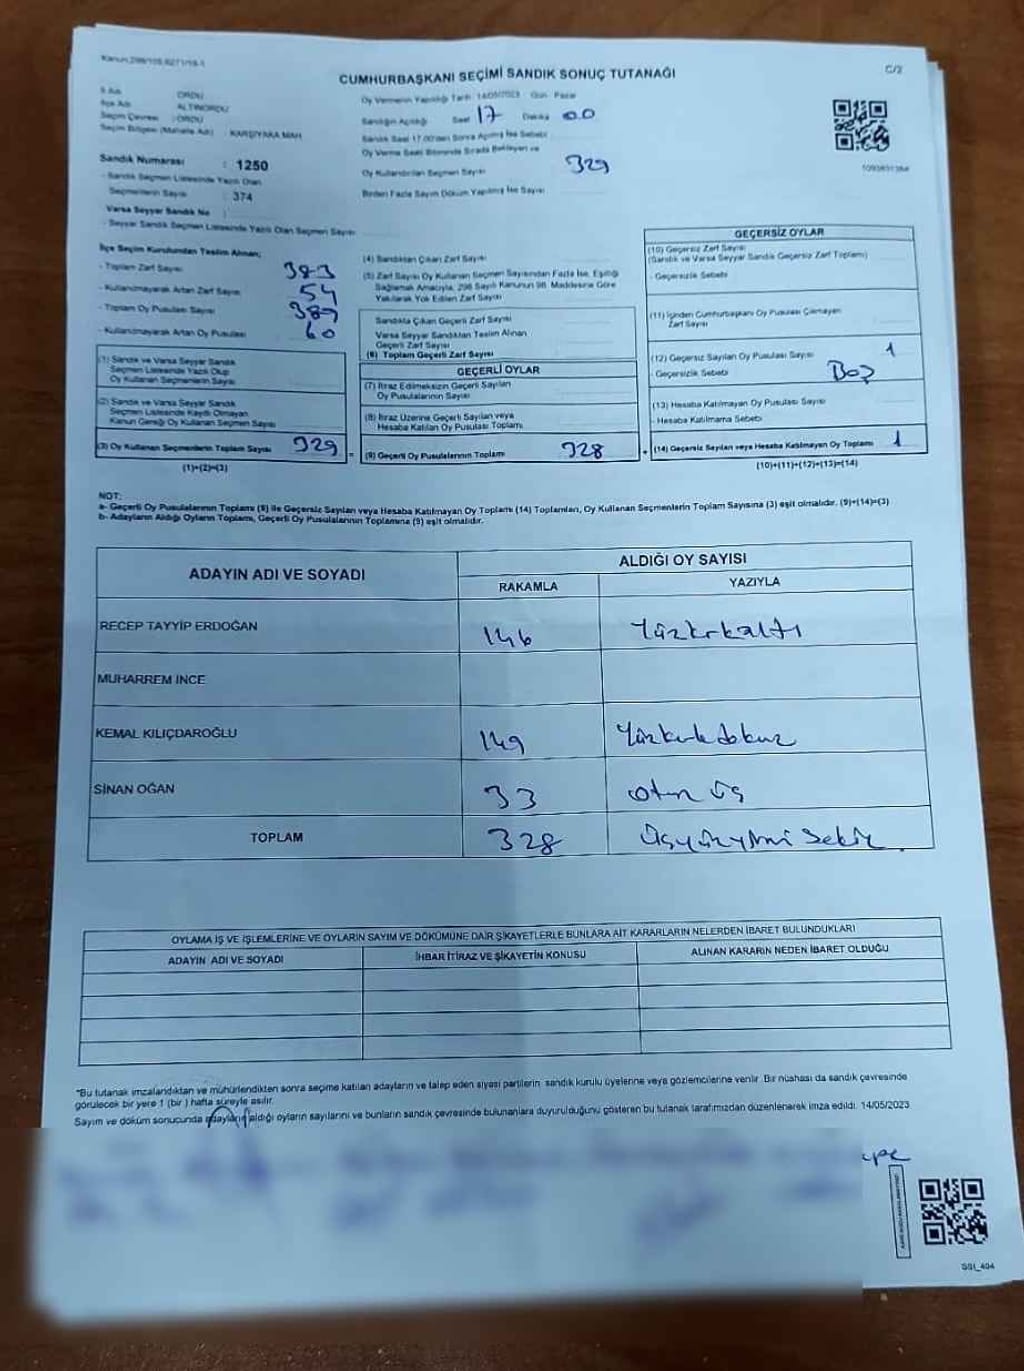 Kanun:298/105,6271/19-1
CUMHURBAŞKANI SEÇİMİ SANDIK SONUÇ TUTANAĞI
C/2
İl Adı : ORDU
İlçe Adı : ALTINORDU
Seçim Çevresi : ORDU
Seçim Bölgesi (Mahalle Adı) : KARŞIYAKA MAH
Sandık Numarası : 1250
- Sandık Seçmen Listesinde Yazılı Olan
Seçmenlerin Sayısı : 374
Varsa Seyyar Sandık No :
- Seyyar Sandık Seçmen Listesinde Yazılı Olan Seçmen Sayısı
Oy Vermenin Yapıldığı Tarih : 14/05/2023 - Gün : Pazar
Sandığın Açıldığı Saat 17 Dakika 00
Sandık Saat 17.00'den Sonra Açılmış İse Sebebi
Oy Verme Saati Bitiminde Sırada Bekleyen ve
Oy Kullandırılan Seçmen Sayısı 329
Birden Fazla Sayım Döküm Yapılmış İse Sayısı
İlçe Seçim Kurulundan Teslim Alınan;
- Toplam Zarf Sayısı 383
- Kullanılmayarak Artan Zarf Sayısı 54
- Toplam Oy Pusulası Sayısı 389
- Kullanılmayarak Artan Oy Pusulası 60
(1) Sandık ve Varsa Seyyar Sandık
Seçmen Listesinde Yazılı Olup
Oy Kullanan Seçmenlerin Sayısı
(2) Sandık ve Varsa Seyyar Sandık
Seçmen Listesinde Kayıtlı Olmayan
Kanun Gereği Oy Kullanan Seçmen Sayısı
(3) Oy Kullanan Seçmenlerin Toplam Sayısı 329
(1)+(2)=(3)
(4) Sandıktan Çıkan Zarf Sayısı
(5) Zarf Sayısı Oy Kullanan Seçmen Sayısından Fazla İse, Eşitliği
Sağlamak Amacıyla, 298 Sayılı Kanunun 98. Maddesine Göre
Yakılarak Yok Edilen Zarf Sayısı
Sandıkta Çıkan Geçerli Zarf Sayısı
Varsa Seyyar Sandıktan Teslim Alınan
Geçerli Zarf Sayısı
(6) Toplam Geçerli Zarf Sayısı
GEÇERLİ OYLAR
(7) İtiraz Edilmeksizin Geçerli Sayılan
Oy Pusulalarının Sayısı
(8) İtiraz Üzerine Geçerli Sayılan veya
Hesaba Katılan Oy Pusulası Toplamı
(9) Geçerli Oy Pusulalarının Toplamı 328
GEÇERSİZ OYLAR
(10) Geçersiz Zarf Sayısı
(Sandık ve Varsa Seyyar Sandık Geçersiz Zarf Toplamı)
- Geçersizlik Sebebi
(11) İçinden Cumhurbaşkanı Oy Pusulası Çıkmayan
Zarf Sayısı
(12) Geçersiz Sayılan Oy Pusulası Sayısı 1
- Geçersizlik Sebebi Boş
(13) Hesaba Katılmayan Oy Pusulası Sayısı
- Hesaba Katılmama Sebebi
(14) Geçersiz Sayılan veya Hesaba Katılmayan Oy Toplamı 1
(10)+(11)+(12)+(13)=(14)
NOT:
a- Geçerli Oy Pusulalarının Toplamı (9) ile Geçersiz Sayılan veya Hesaba Katılmayan Oy Toplamı (14) Toplamları, Oy Kullanan Seçmenlerin Toplam Sayısına (3) eşit olmalıdır. (9)+(14)=(3)
b- Adayların Aldığı Oyların Toplamı, Geçerli Oy Pusulalarının Toplamına (9) eşit olmalıdır.
ADAYIN ADI VE SOYADI
ALDIĞI OY SAYISI
RAKAMLA YAZIYLA
RECEP TAYYİP ERDOĞAN 146 Yüzkırkaltı
MUHARREM İNCE
KEMAL KILIÇDAROĞLU 149 Yüzkırkdokuz
SİNAN OĞAN 33 otuz üç
TOPLAM 328 Üçyüzyirmi Sekiz
OYLAMA İŞ VE İŞLEMLERİNE VE OYLARIN SAYIM VE DÖKÜMÜNE DAİR ŞİKAYETLERLE BUNLARA AİT KARARLARIN NELERDEN İBARET BULUNDUKLARI
ADAYIN ADI VE SOYADI İHBAR İTİRAZ VE ŞİKAYETİN KONUSU ALINAN KARARIN NEDEN İBARET OLDUĞU
*Bu tutanak imzalandıktan ve mühürlendikten sonra seçime katılan adayların ve talep eden siyasi partilerin sandık kurulu üyelerine veya gözlemcilerine verilir. Bir nüshası da sandık çevresinde
görülecek bir yere 1 (bir) hafta süreyle asılır.
Sayım ve döküm sonucunda adayların aldığı oyların sayılarını ve bunların sandık çevresinde bulunanlara duyurulduğunu gösteren bu tutanak tarafımızdan düzenlenerek imza edildi. 14/05/2023
SSI_404